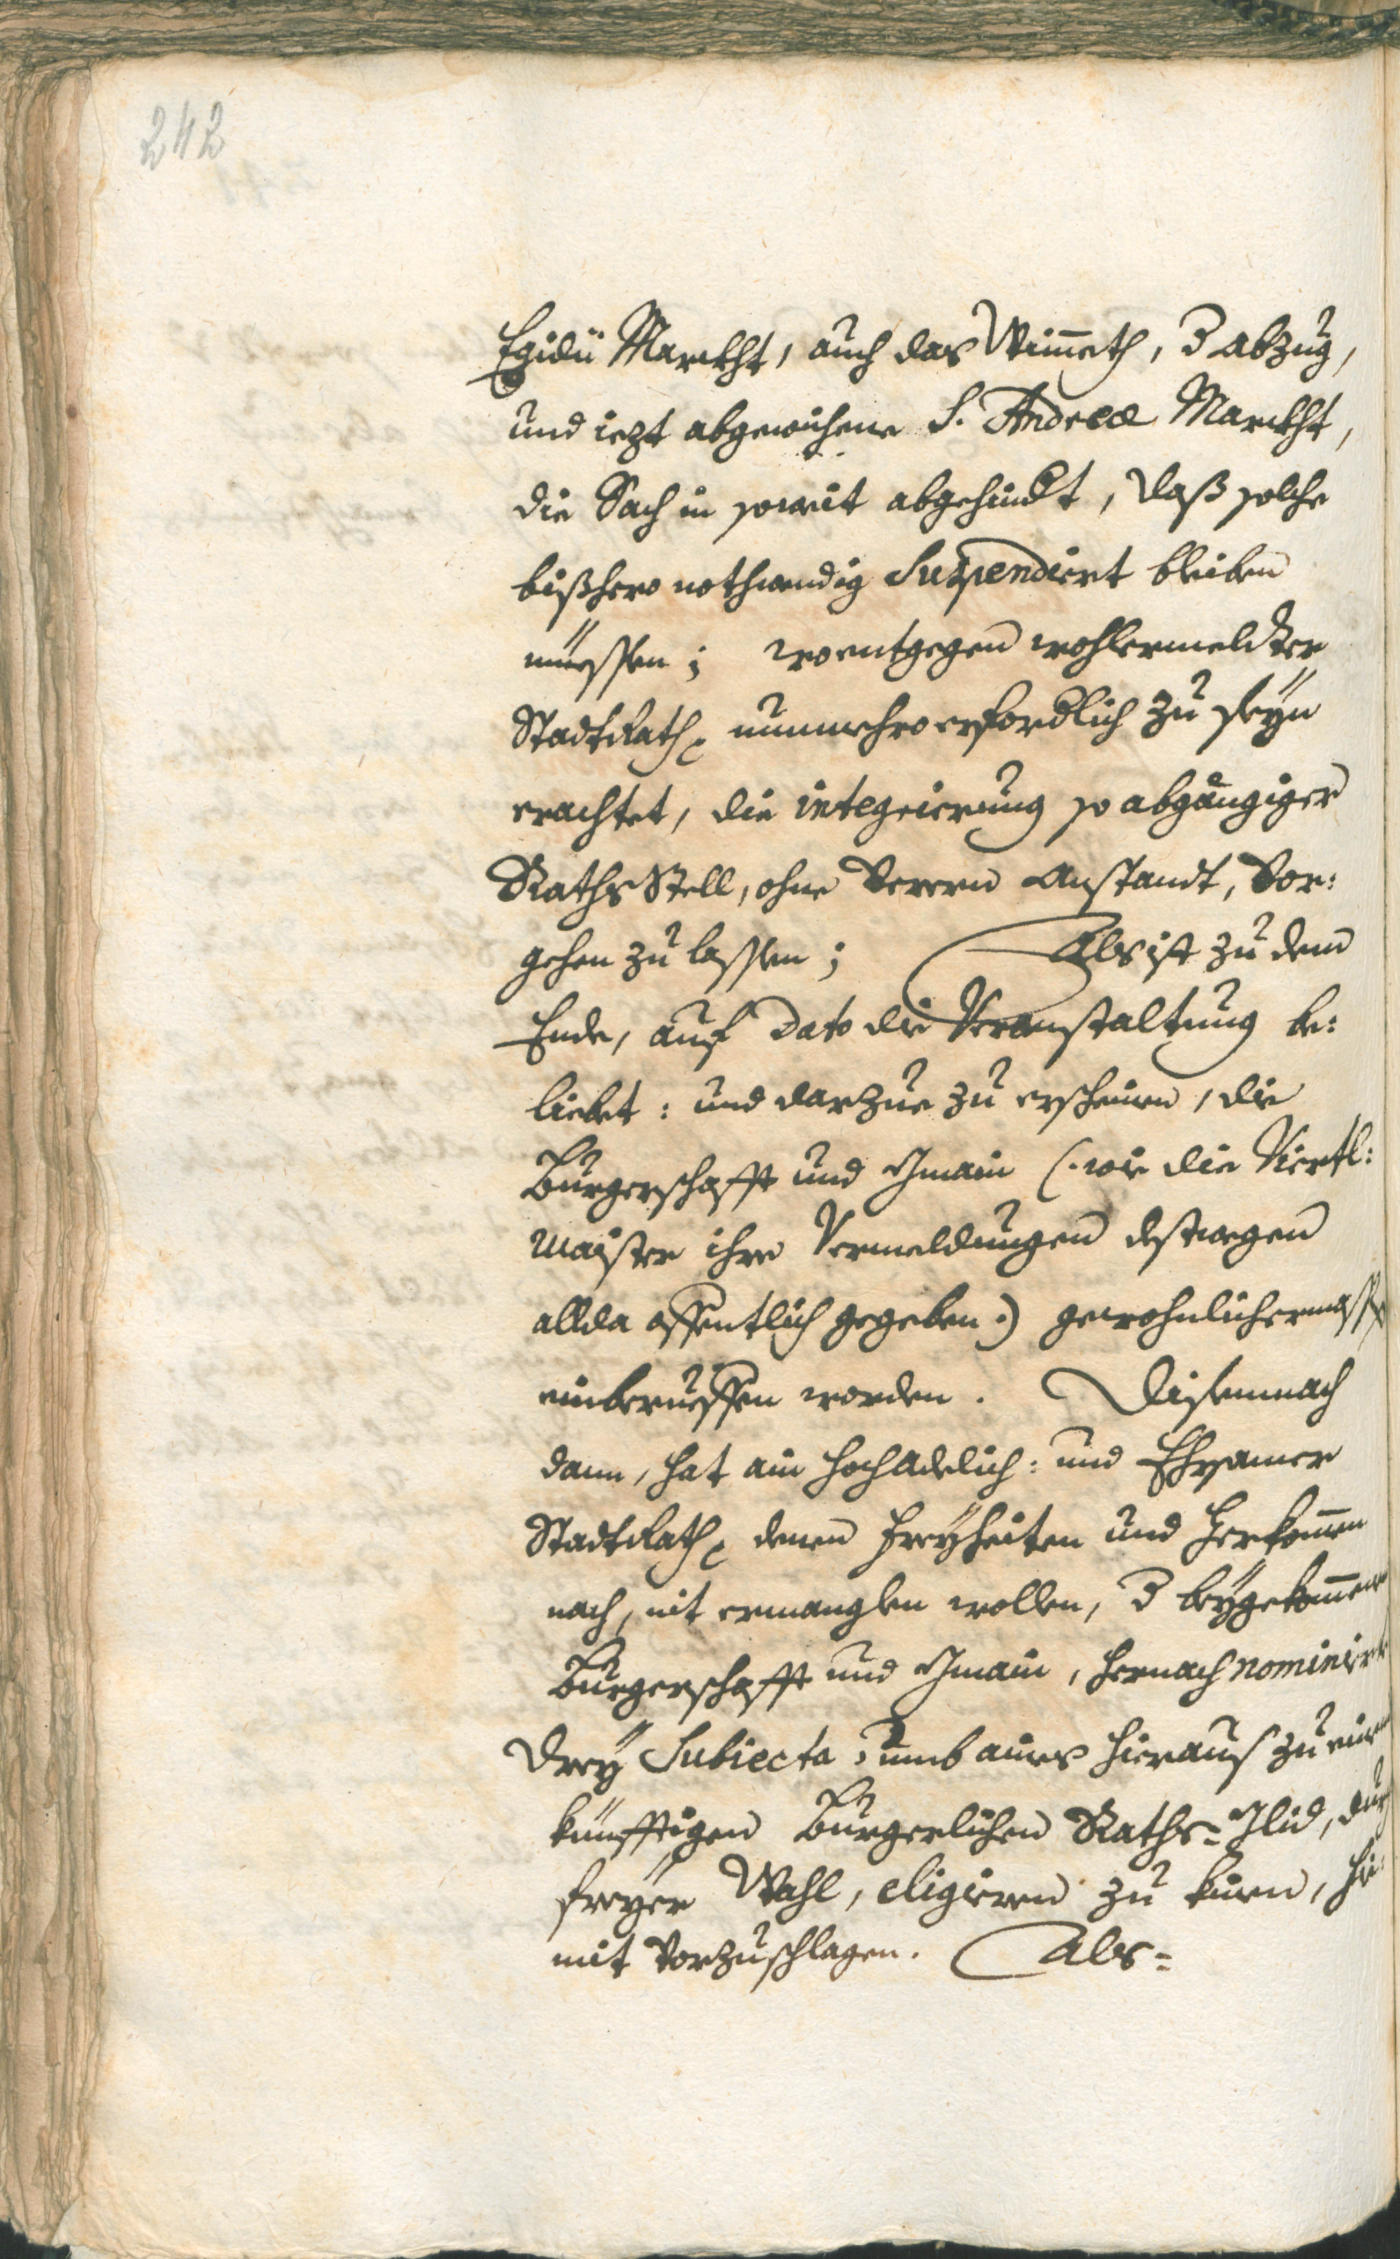 242
Egidii Marckht, auch das Wim̄eth, 3 abzug,
und iezt abgewichene S. Andreæ Marckht,
die Sach in soweit abgehindt, daß solche
bißhero nothwendig Suspendiert bleiben
müessen; woentgegen wohlermeldter
StadtRath, nunmehro erfordlich zu seÿn
erachtet, die integrierung so abgängiger
Raths Stell, ohne Verern Anstandt, Vor:
gehen zu lassen; Als ist zu dem
Ende, auf Dato die Veranstaltung be:
liebt: und darzue zu erscheinen, die
Burgerschafft und Gmain (: wie die Viertl:
maister ihre Vermeldungen destwegen
allda offentlich gegeben:) gewohnlichermasse
einberueffen worden. Disemnach
dann, hat ain hochAdelich: und Ehrsamer
StadtRath, denen freÿheiten und herkom̄en
nach, nit ermanglen wollen, 3 beÿgekom̄ene
Burgerschafft und Gmain, hernach nominierte
Dreÿ Subiecta, umb aines hieraus zu ein
künfftigen Burgerlichen Raths-Glid, durch
freÿer Wahl, eligieren zu kinen, hie:
mit Vorzuschlagen. Als=